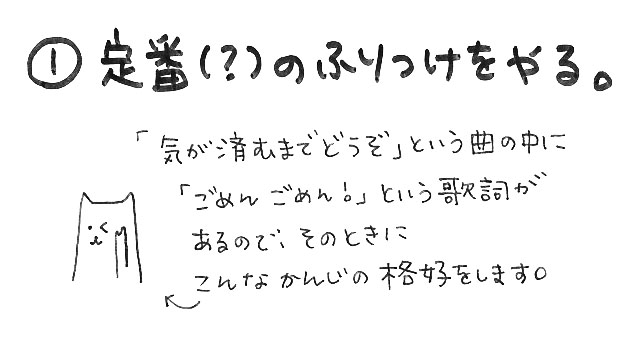 ① 定番(?)のふりつけをやる。
「気が済むまでどうぞ」という曲の中に
「ごめん ごめん!」という歌詞が
あるので、そのときに
こんなかんじの格好をします。